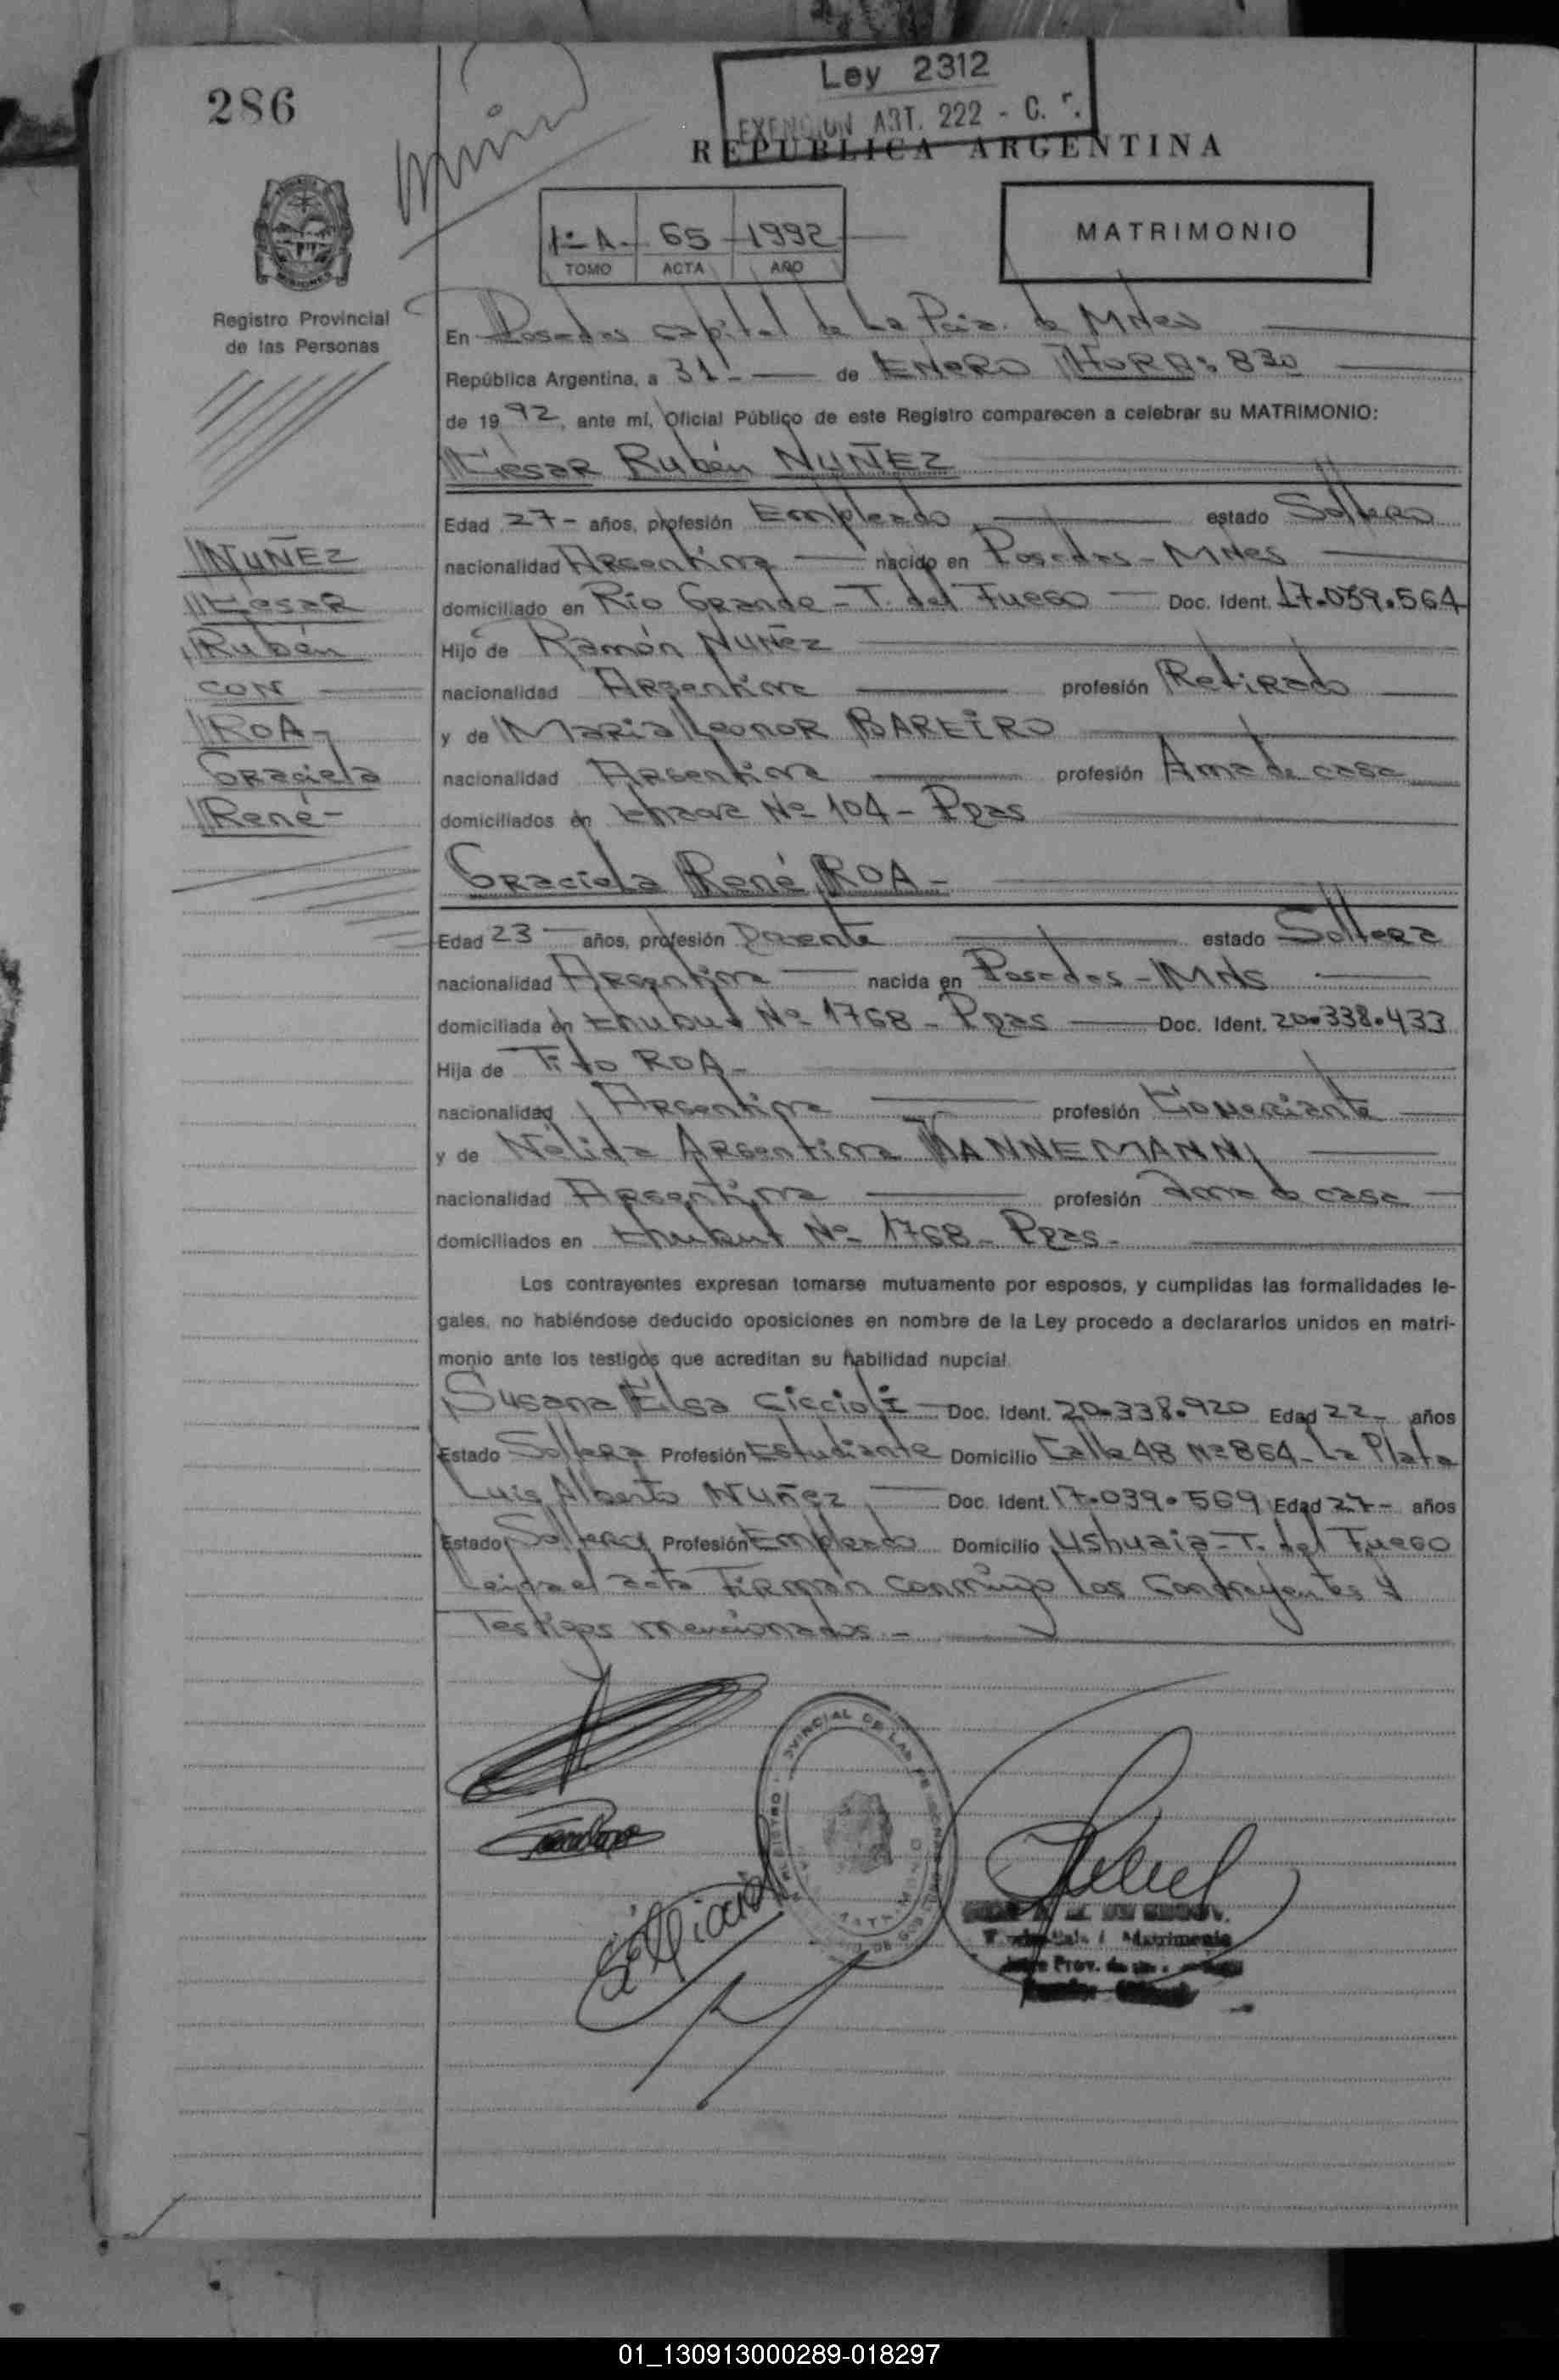 286
Ley 2312
EXENCION ART. 222 - C. F.
REPUBLICA ARGENTINA
1º A. 65 1992
TOMO ACTA AÑO
MATRIMONIO
Registro Provincial
de las Personas
En Posadas capital de La Pcia. de Mnes
República Argentina, a 31 - de ENERO HORA: 830
de 1992, ante mí, Oficial Público de este Registro comparecen a celebrar su MATRIMONIO:
César Rubén NUÑEZ
Edad 27 - años, profesión Empleado estado Soltero
nacionalidad Argentina nacido en Posadas - Mnes
domiciliado en Río Grande - T. del Fuego Doc. Ident. 17.039.564
Hijo de Ramón Nuñez
nacionalidad Argentina profesión Retirado
y de Maria Leonor BAREIRO
nacionalidad Argentina profesión Ama de casa
domiciliados en Nº 104 - Pdas
NUÑEZ
César
Rubén
CON
ROA -
Graciela
René -
Graciela René ROA -
Edad 23 años, profesión Docente estado Soltera
nacionalidad Argentina nacida en Posadas - Mns
domiciliada en Chubut Nº 1768 - Pdas Doc. Ident. 20.338.433
Hija de Tito ROA -
nacionalidad Argentina profesión Comerciante
y de Nélida Argentina WANNEMANN
nacionalidad Argentina profesión Ama de casa
domiciliados en Chubut Nº 1768 - Pdas -
Los contrayentes expresan tomarse mutuamente por esposos, y cumplidas las formalidades le-
gales, no habiéndose deducido oposiciones en nombre de la Ley procedo a declararlos unidos en matri-
monio ante los testigos que acreditan su habilidad nupcial.
Susana Elsa Ciccioli Doc. Ident. 20.338.920 Edad 22 - años
Estado Soltera Profesión Estudiante Domicilio Calle 48 Nº 864 - La Plata
Luis Alberto Nuñez Doc. Ident. 17.039.569 Edad 27 - años
Estado Soltero Profesión Empleado Domicilio Ushuaia - T. del Fuego
Leida el acta Firman conmigo los Contrayentes y
Testigos mencionados -
01_130913000289-018297